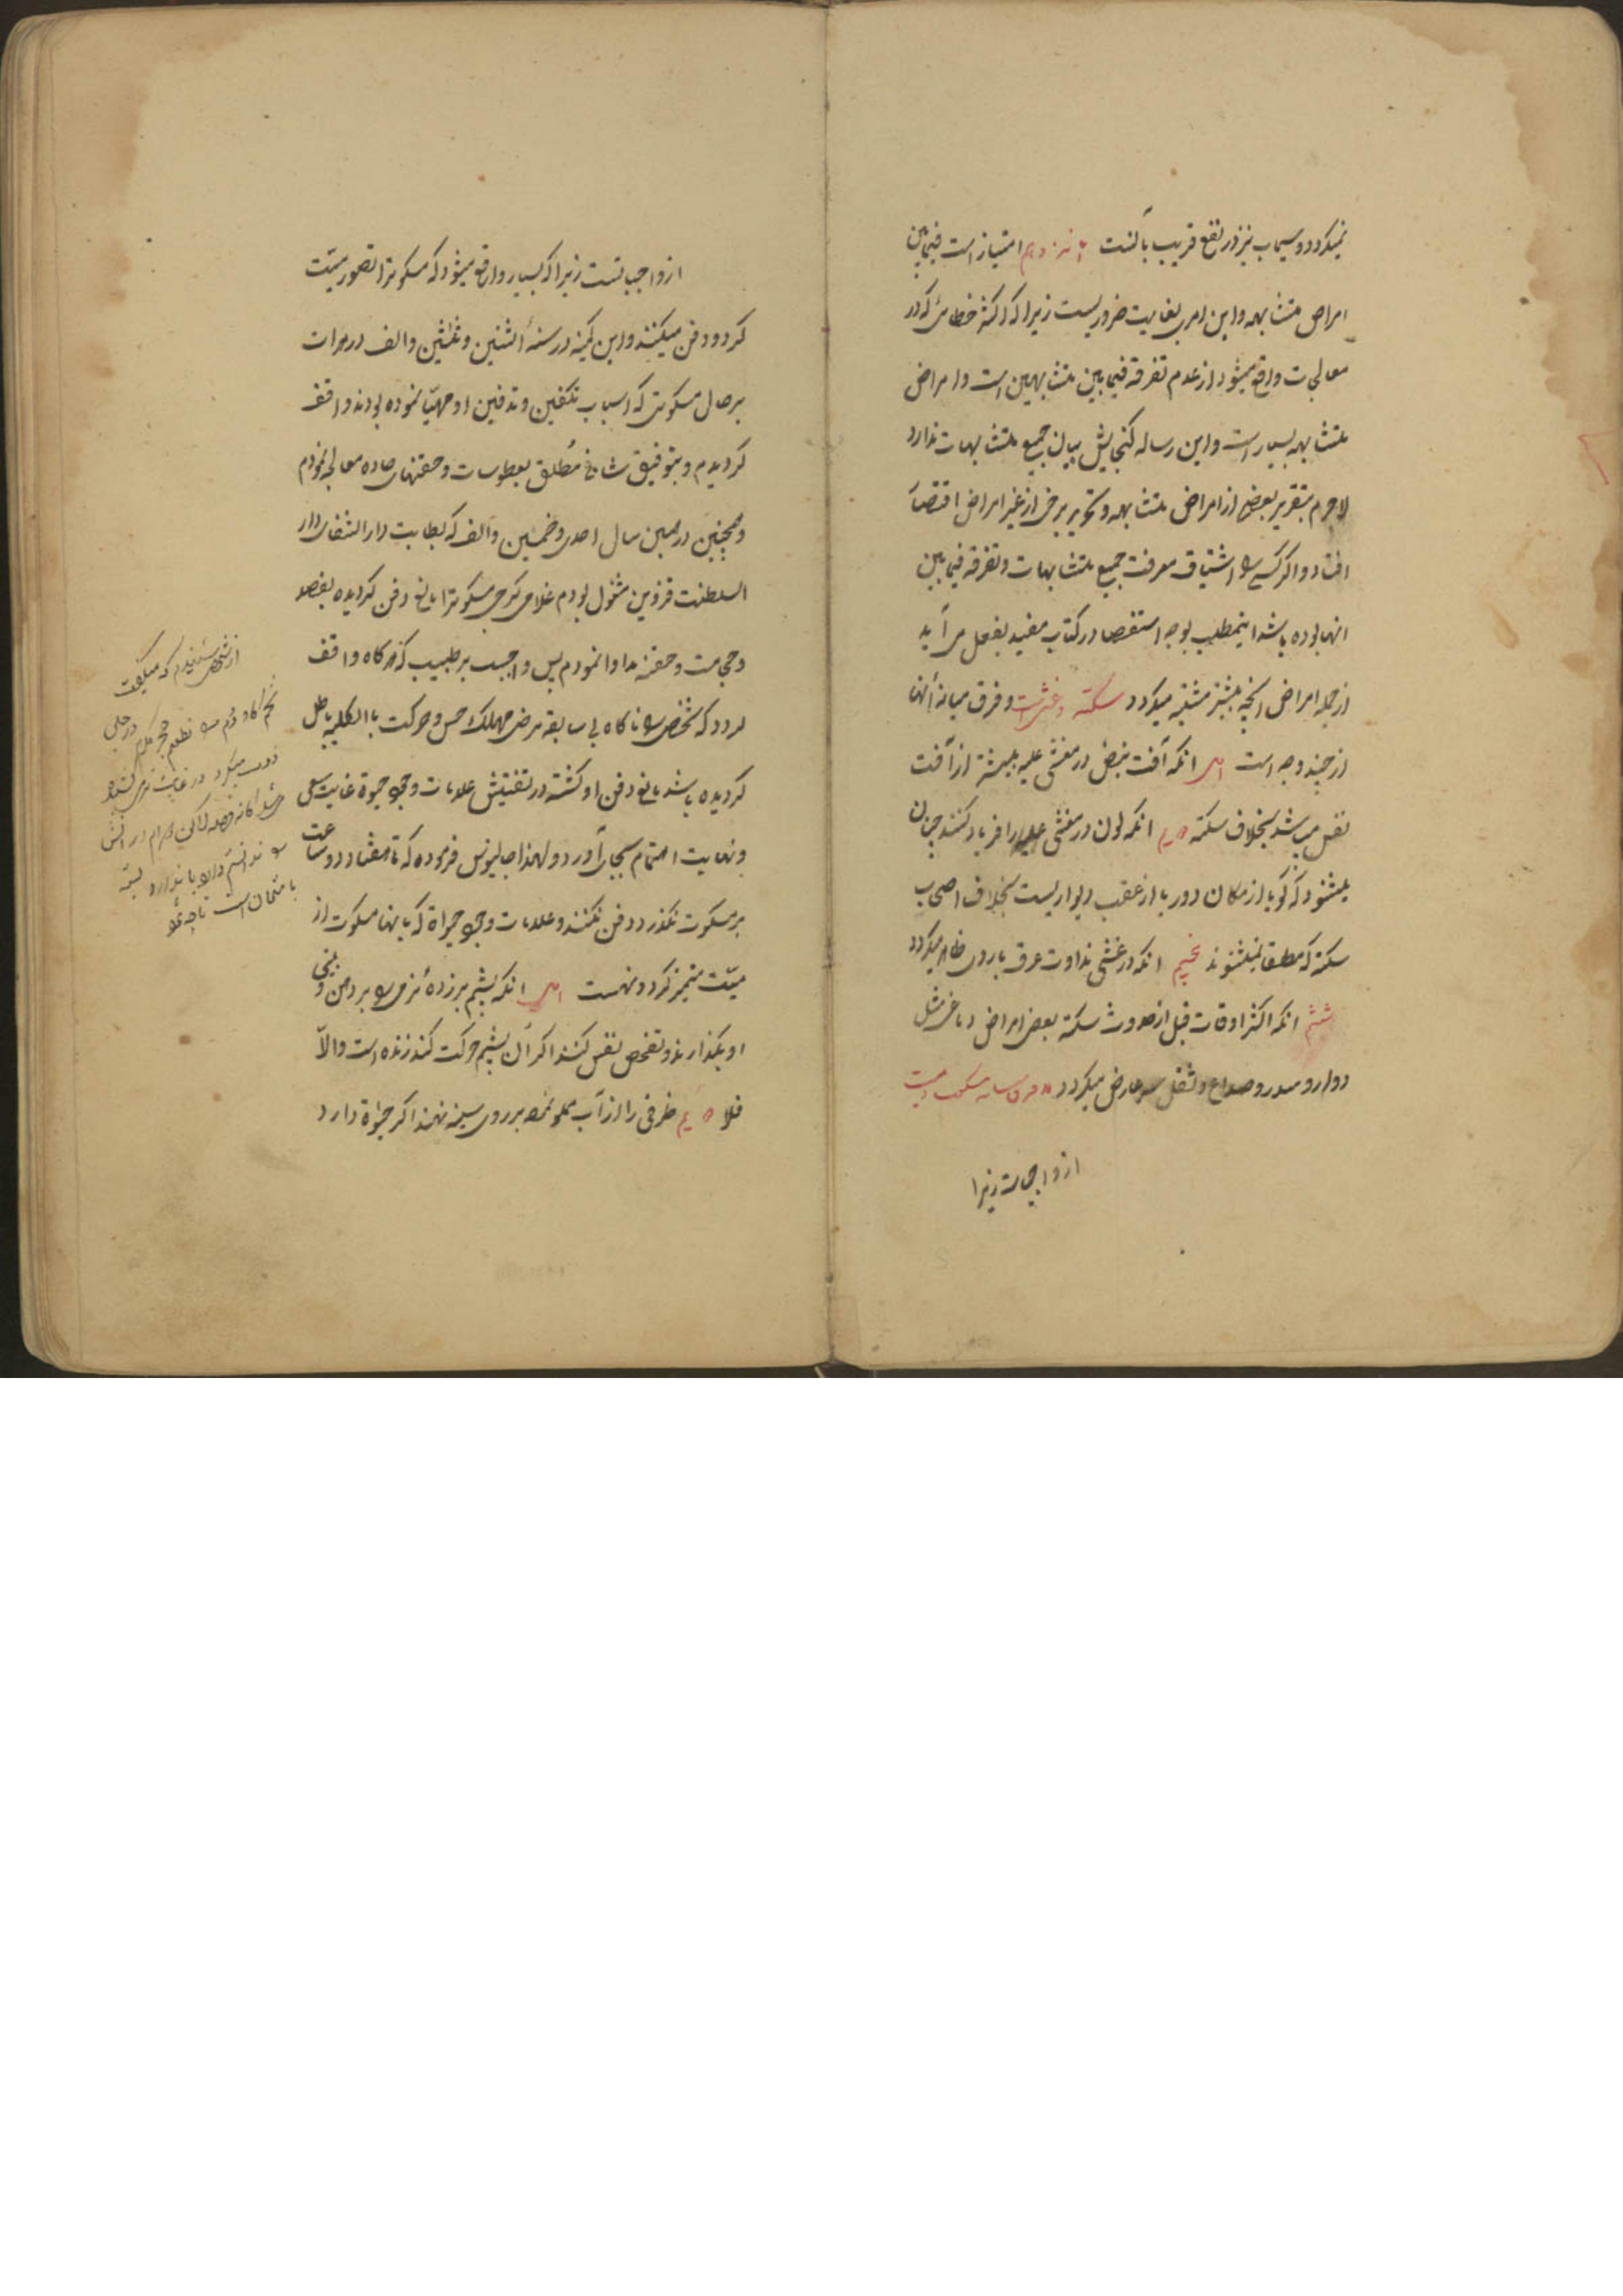 نمیکردد و سیماب نیز در نفع قریب بآنست امتیاز است فیمابین
امراض متشابهه و این امری بغایت ضروریست زیرا که اکثر خطائی که در
معالجات واقع میشود از عدم تفرقه فیمابین متشابهین است و امراض
متشابهه بسیار است و این رساله کنجایش بیان جمیع متشابهات ندارد
لاجرم بتقریر بعضی از امراض متشابهه و تحریر برخی از غیر امراض اقتصار
افتاد و اکر کسی را اشتیاق معرفت جمیع متشابهات و تفرقه فیمابین
انها بوده باشد اینمطلب بوجه استقصا در کتاب مفید بفعل می آید
از جمله امراض انچه بیشتر مشتبه میکردد سکته و غشی است و فرق میانه آنها
از چند وجه است اول انکه آفت نبض در مغشی علیه بیشتر از آفت
نفس میباشد بخلاف سکته انکه چون در مغشی علیه را فریاد کنند چنان
میشنود که کویا از مکان دور یا از عقب دیواریست بخلاف اصحاب
سکته که مطلقا نمیشنوند پنجم انکه در غشی نداوت عرق بارد ظاهر میکردد
ششم انکه اکثر اوقات قبل از حدوث سکته بعض امراض دماغی مثل
دوار و سدر و صداع و ثقل سر عارض میکردد و فرق میانه مسکوت و میت
از واجباتست زیرا
از واجباتست زیرا که بسیار واقع میشود که مسکوت را تصور میّت
کرده دفن میکنند و این کمینه در سنهٔ اثنین و ثلثین و الف در هرات
بر حال مسکوتی که اسباب تکفین و تدفین او مهیّا نموده بودند واقف
کردیدم و بتوفیق شافی مطلق بعطوسات و حقنهای حاده معالجه نمودم
و همچنین در همین سال احدی و خمسین و الف که بطبابت دار الشفای دار
السلطنت قزوین مشغول بودم غلامی کرجی مسکوت را مانع دفن کردیده بفصد
و حجامت و حقنه مداوا نمودم پس واجبست بر طبیب که هر کاه واقف
کردد که شخصی را ناکاه بی سابقه مرضی مهلک حس و حرکت بالکلیه باطل
کردیده باشد مانع دفن او کشته در تفتیش علامات وجود حیوة غایت سعی
و نهایت اهتمام بجای آورد و لهذا جالینوس فرموده که تا هفتاد و دو ساعت
بر مسکوت نکذرد دفن نکنند و علامات وجود حیواة که بانها مسکوت از
میّت متمیز کردد نهست اول انکه پشم بر زدهٔ نرمی را بر دهن و بینی
او بکذارند و تفحص نفس کنند اکر آن پشم حرکت کند زنده است و الّا
فلا ظرفی را از آب مملو نموده بر روی سینه نهند اکر حیوة دارد
از شخصی شنیدم که میکفت